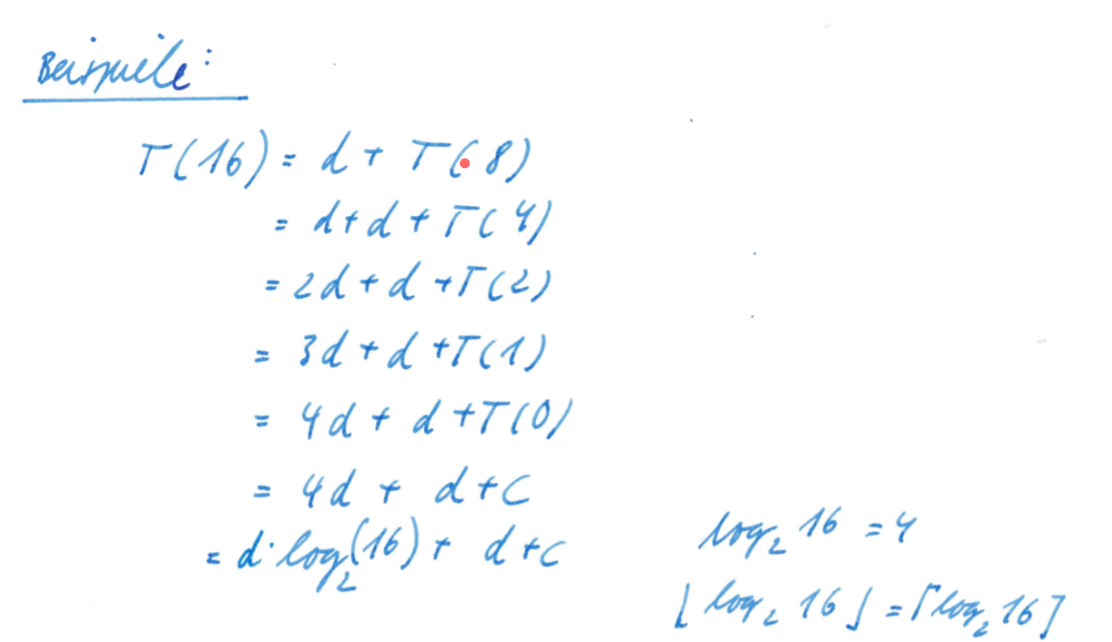 Beispiele:
T(16) = d + T(8)
= d + d + T(4)
= 2d + d + T(2)
= 3d + d + T(1)
= 4d + d + T(0)
= 4d + d + C
= d · log₂(16) + d + c
log₂ 16 = 4
⌊log₂ 16⌋ = ⌈log₂ 16⌉